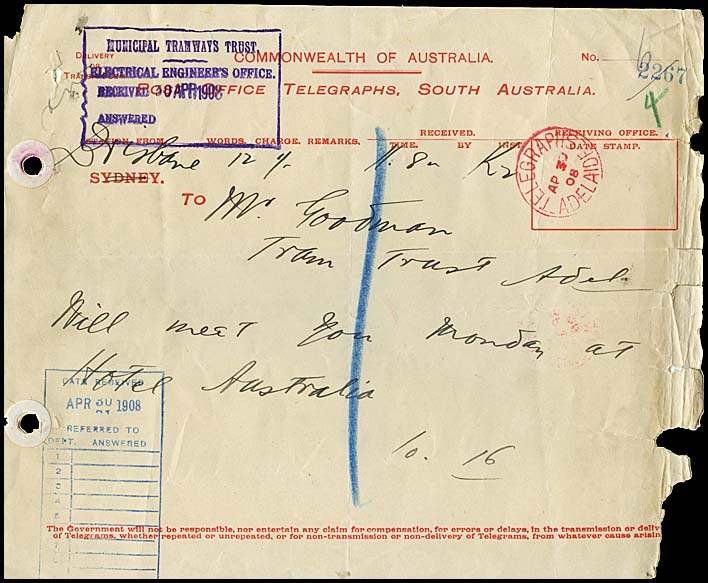 MUNICIPAL TRAMWAYS TRUST.
ELECTRICAL ENGINEER'S OFFICE.
RECEIVED 30 APR 1908
ANSWERED
DELIVERY
OR
COMMONWEALTH OF AUSTRALIA.
No.
2267
4
POST OFFICE TELEGRAPHS, SOUTH AUSTRALIA.
STATION FROM WORDS, CHARGE. REMARKS.
RECEIVED.
TIME. BY INST.
RECEIVING OFFICE.
DATE STAMP.
TELEGRAPHS OFFICE ADELAIDE
AP 30
08
12
SYDNEY.
TO Mr. Goodman
Tram Trust Adel.
Will meet you Monday at
Hotel Australia
10. 16
DATE RECEIVED
APR 30 1908
REFERRED TO
DEPT. ANSWERED
1
2
3
4
5
The Government will not be responsible, nor entertain any claim for compensation, for errors or delays, in the transmission or deliv
of Telegrams, whether repeated or unrepeated, or for non-transmission or non-delivery of Telegrams, from whatever cause arisin